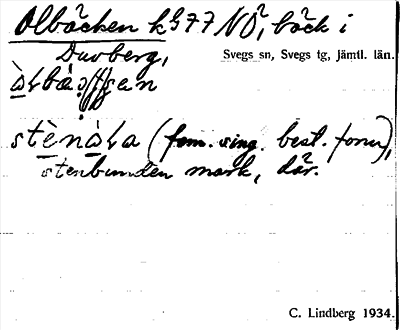 Olbäcken k 577 NÖ, bäck i
Duvberg,
Svegs sn, Svegs tg, jämtl. län.
stènàla (fem. sing. best. form),
stenbunden mark, där.
C. Lindberg 1934.